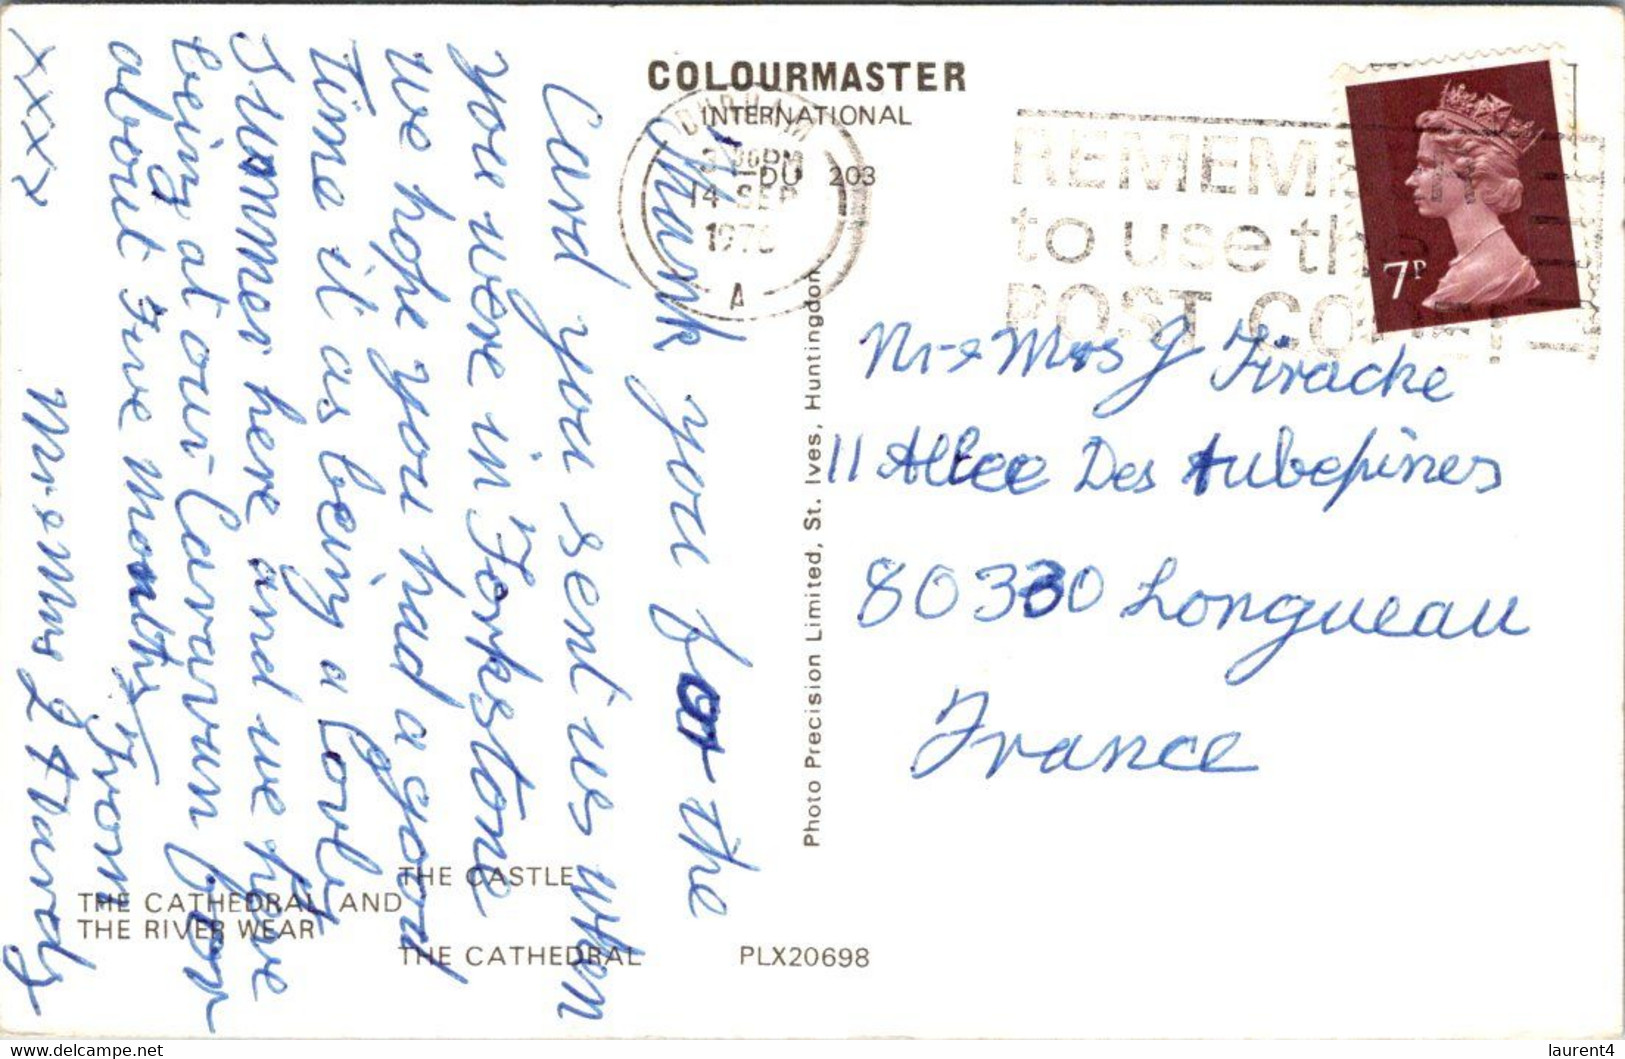 COLOURMASTER
INTERNATIONAL
DU 203
DURHAM
PM
14 SEP
A
REMEM
to use th
POST CODE
7P
Thank you for the
Card you sent us when
you were in Forkstone
We hope you had a good
Time it as being a lovly
Summer here and we have
being at our Caravan for
about Five Months
From
Mr & Mrs J Hardy
xxxx
Mr & Mrs J Firache
11 Allee Des Aubepines
80330 Longueau
France
Photo Precision Limited, St. Ives, Huntingdon
THE CASTLE
THE CATHEDRAL AND
THE RIVER WEAR
THE CATHEDRAL
PLX20698
laurent4